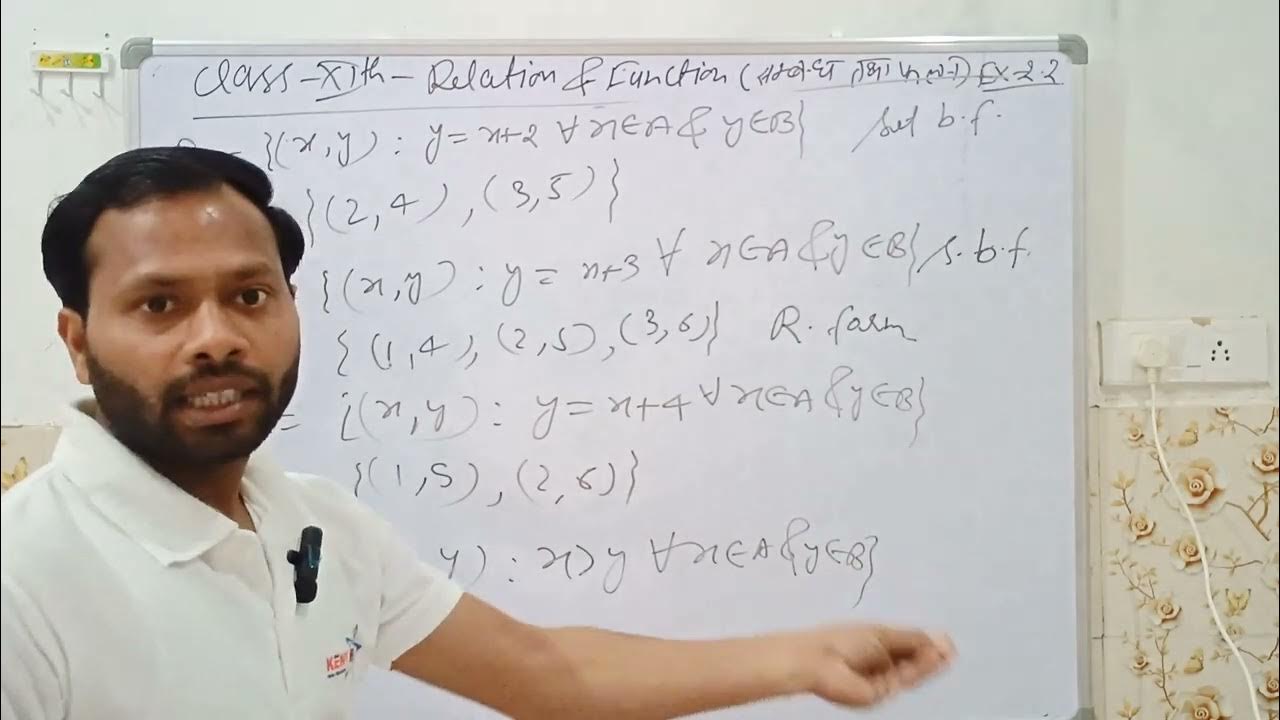 Class-XIth- Relation & Function (सम्बन्ध तथा फलन) EX-2.2
= {(x,y) : y=x+2 ∀ x∈A & y∈B} set b.f.
{(2,4), (3,5)}
{(x,y) : y = x+3 ∀ x∈A & y∈B} s.b.f.
{(1,4), (2,5), (3,6)} R. form
= {(x,y) : y=x+4 ∀ x∈A & y∈B}
{(1,5), (2,6)}
y) : x>y ∀ x∈A & y∈B}